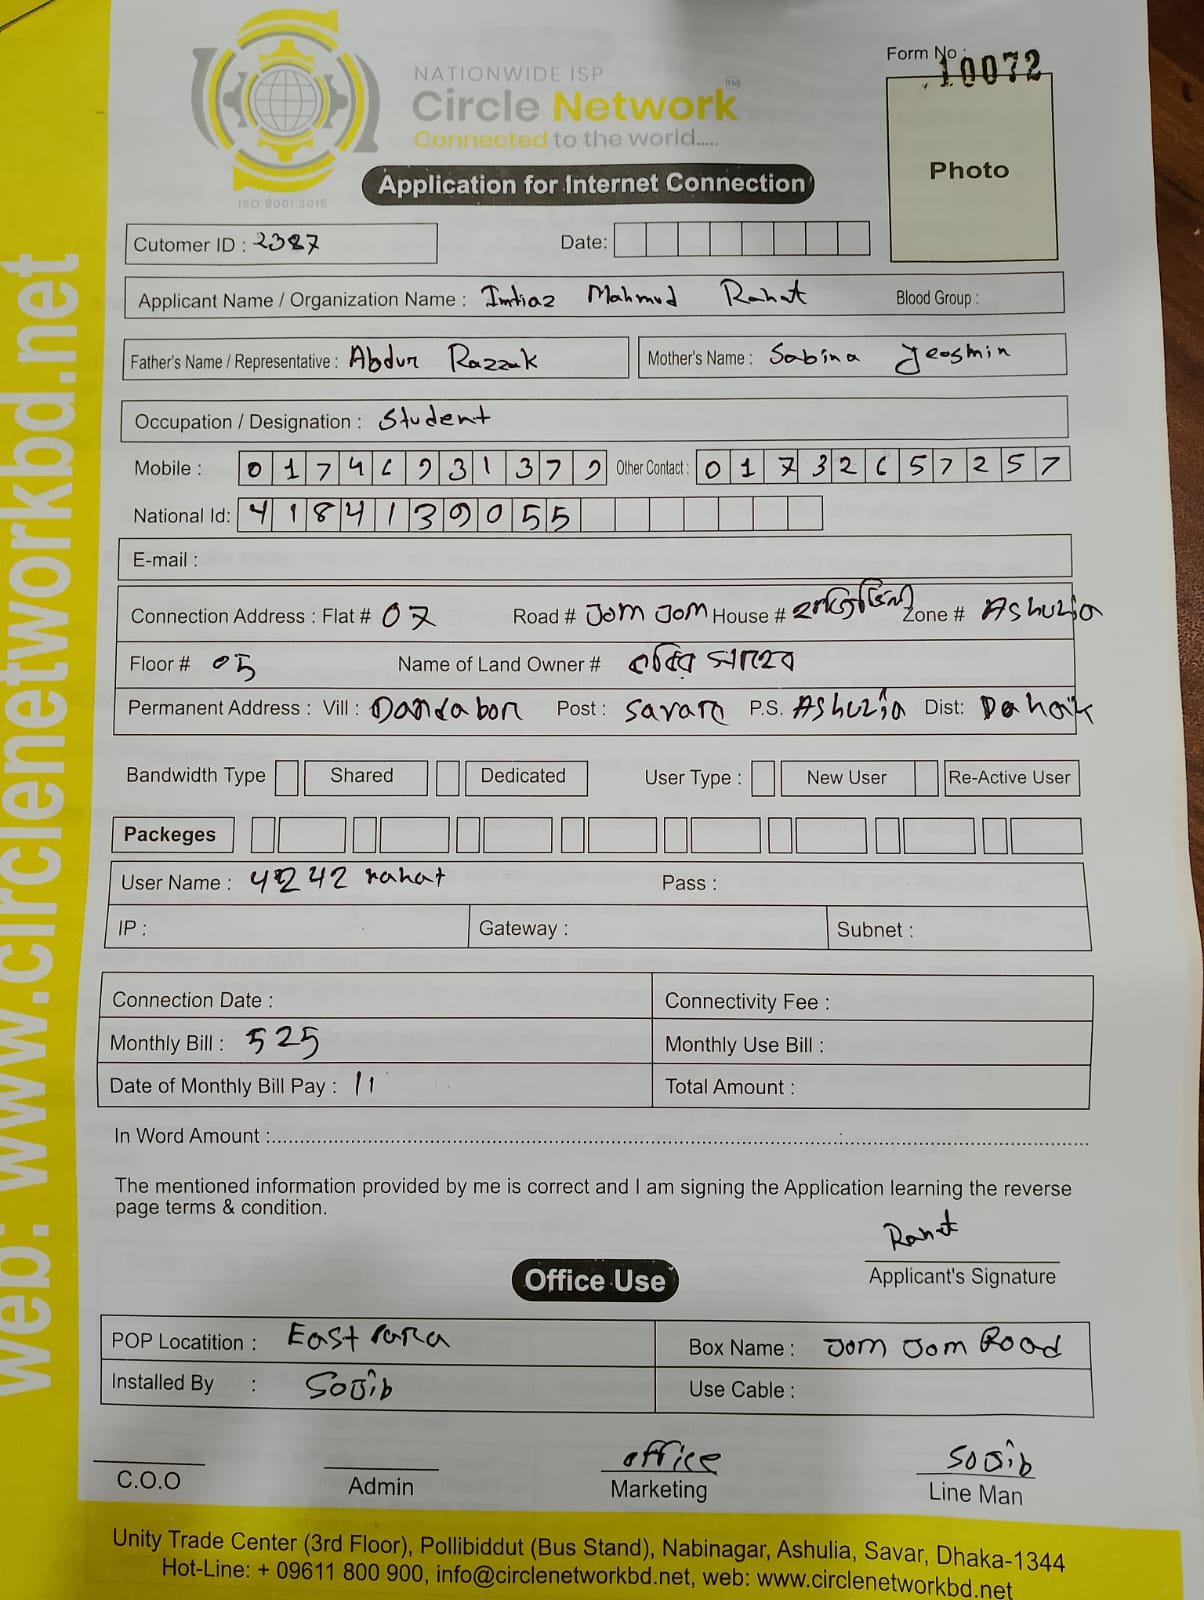 Form No : 10072
NATIONWIDE ISP
Circle Network (TM)
Connected to the world.....
ISO 9001:2015
Application for Internet Connection
Photo
Cutomer ID : 2387 Date:
Applicant Name / Organization Name : Imtiaz Mahmud Rahat Blood Group :
Father's Name / Representative : Abdur Razzak Mother's Name : Sabina Yeasmin
Occupation / Designation : Student
Mobile : Other Contact : 01732657257
National Id: 4184139055
E-mail :
Connection Address : Flat # 07 Road # Jom Jom House # Zone # Ashulia
Floor # 05 Name of Land Owner #
Permanent Address : Vill : Dandabor Post : Savar P.S. Ashulia Dist: Dahak
Bandwidth Type Shared Dedicated User Type : New User Re-Active User
Packeges
User Name : 4242 rahat Pass :
IP : Gateway : Subnet :
Connection Date : Connectivity Fee :
Monthly Bill : 525 Monthly Use Bill :
Date of Monthly Bill Pay : 11 Total Amount :
In Word Amount :
The mentioned information provided by me is correct and I am signing the Application learning the reverse
page terms & condition.
Rahat
Applicant's Signature
Office Use
POP Locatition : East Para Box Name : Jom Jom Road
Installed By : Sojib Use Cable :
office Sojib
C.O.O Admin Marketing Line Man
Unity Trade Center (3rd Floor), Pollibiddut (Bus Stand), Nabinagar, Ashulia, Savar, Dhaka-1344
Hot-Line: + 09611 800 900, info@circlenetworkbd.net, web: www.circlenetworkbd.net
web: www.circlenetworkbd.net